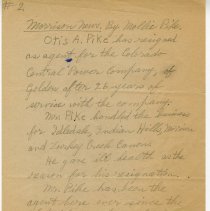 # 2.
Morrison News, By Mollie Pike.
Otis A. Pike has resigned
as agent for the Colorado
Central Power Company, of
Golden after 26 years of
service with the company.
Mr. Pike handled the business
for Idledale, Indian Hills, Morrison
and Turkey Creek Canon.
He gave ill health as the
reason for his resignation.
Mr. Pike has been the
agent here ever since the